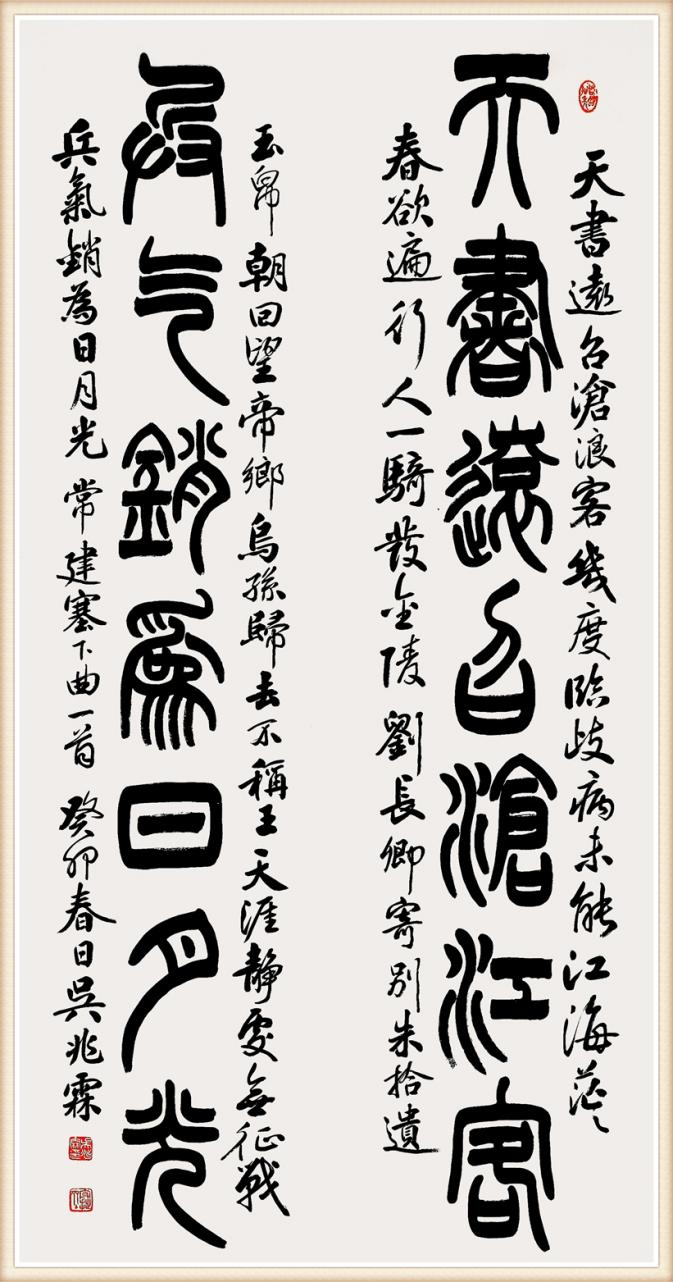 天書遠召滄浪客幾度臨歧病未能江海茫々
天書遠召滄江客
春欲遍行人一騎發金陵 劉長卿寄別朱拾遺
玉帛朝回望帝鄉烏孫歸去不稱王天涯靜處無征戰
兵气銷爲日月光
兵氣銷為日月光 常建塞下曲一首 癸卯春日吳兆霖